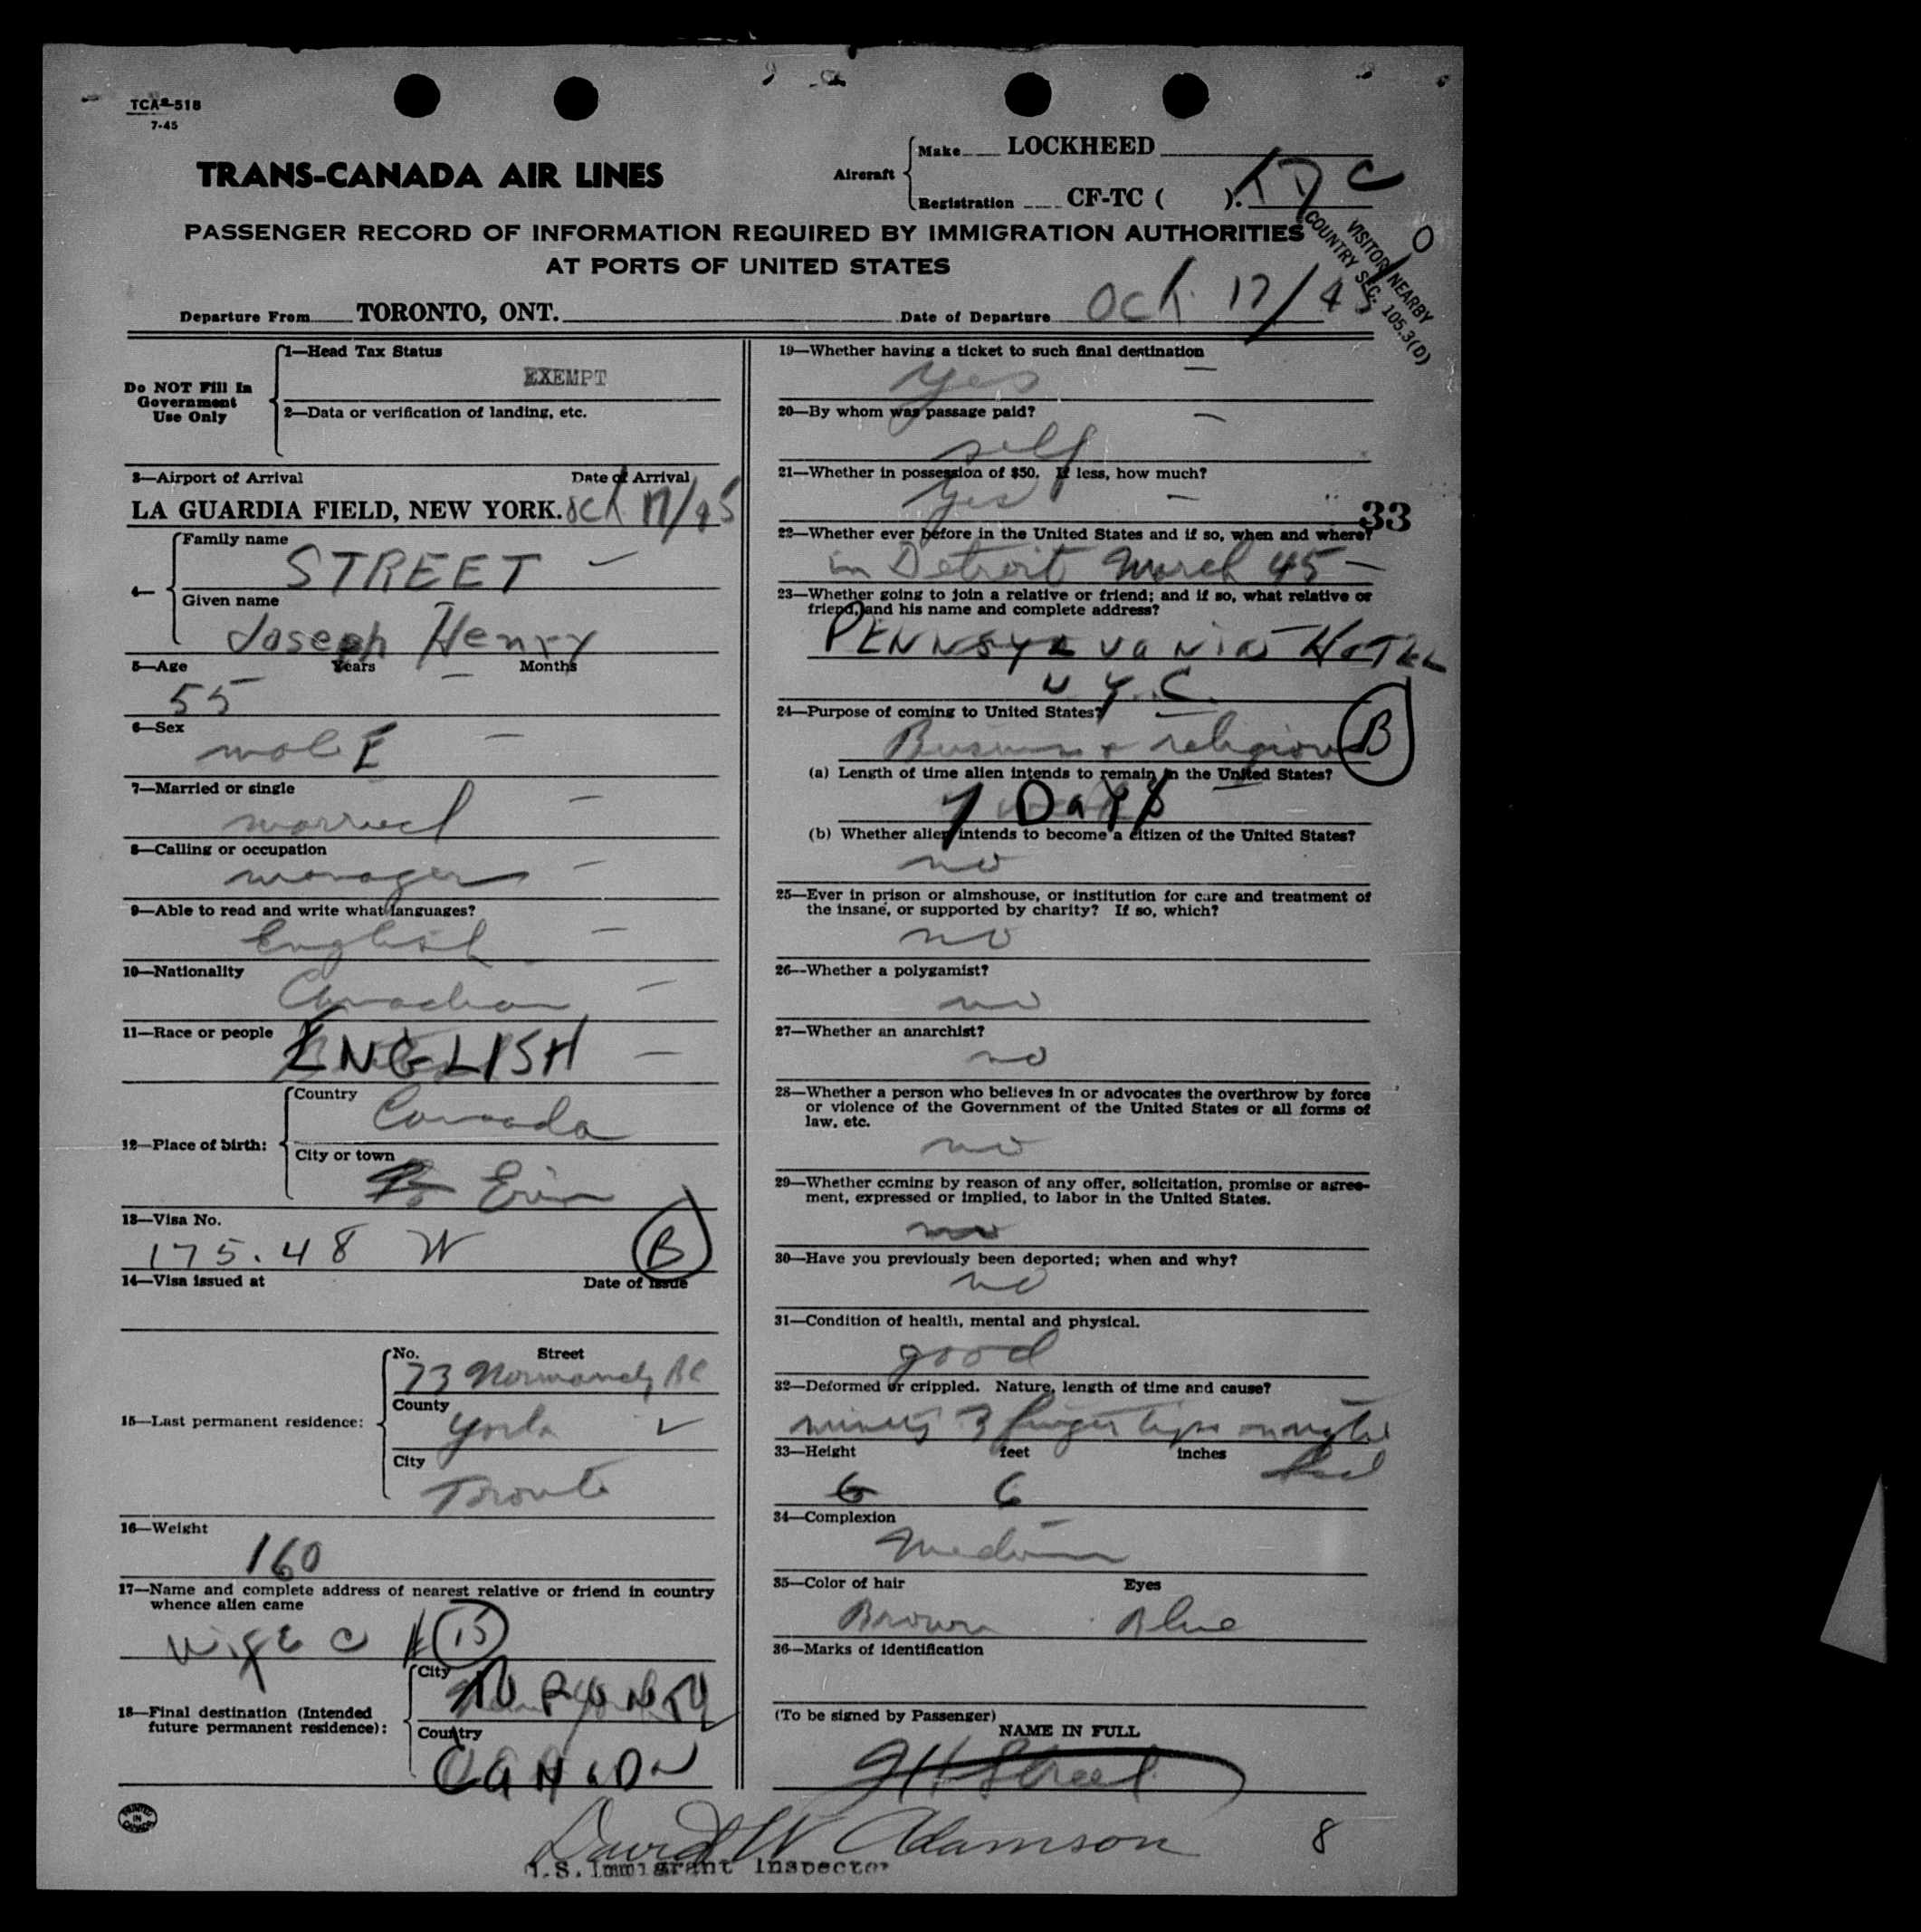 TCA-518
7-45
TRANS-CANADA AIR LINES
Aircraft
Make LOCKHEED
Registration CF-TC ( ). TDC
PASSENGER RECORD OF INFORMATION REQUIRED BY IMMIGRATION AUTHORITIES
AT PORTS OF UNITED STATES
VISITOR NEARBY
COUNTRY SEC. 105.3(D)
Departure From TORONTO, ONT. Date of Departure Oct. 17/45
Do NOT Fill In
Government
Use Only
1—Head Tax Status
EXEMPT
2—Data or verification of landing, etc.
3—Airport of Arrival Date of Arrival
LA GUARDIA FIELD, NEW YORK. Oct 17/45
4—
Family name
STREET –
Given name
Joseph Henry
5—Age Years Months
55 –
6—Sex
malE –
7—Married or single
married –
8—Calling or occupation
manager –
9—Able to read and write what languages?
English –
10—Nationality
Canadian –
11—Race or people
ENGLISH –
12—Place of birth:
Country
Canada
City or town
Erin
13—Visa No.
175.48 W B
14—Visa issued at Date of issue
15—Last permanent residence:
No. Street
73 Normandy
County
York
City
Toronto
16—Weight
160
17—Name and complete address of nearest relative or friend in country
whence alien came
wife c 15
18—Final destination (Intended
future permanent residence):
City
TORONTO
Country
CANADA
19—Whether having a ticket to such final destination
yes –
20—By whom was passage paid?
self –
21—Whether in possession of $50. If less, how much?
yes –
33
22—Whether ever before in the United States and if so, when and where?
in Detroit March 45 –
23—Whether going to join a relative or friend; and if so, what relative or
friend, and his name and complete address?
PENNSYLVANIA HOTEL
N.Y.C.
24—Purpose of coming to United States?
Business & religious B
(a) Length of time alien intends to remain in the United States?
7 DAYS
(b) Whether alien intends to become a citizen of the United States?
no
25—Ever in prison or almshouse, or institution for care and treatment of
the insane, or supported by charity? If so, which?
no
26—Whether a polygamist?
no
27—Whether an anarchist?
no
28—Whether a person who believes in or advocates the overthrow by force
or violence of the Government of the United States or all forms of
law, etc.
no
29—Whether coming by reason of any offer, solicitation, promise or agree-
ment, expressed or implied, to labor in the United States.
no
30—Have you previously been deported; when and why?
no
31—Condition of health, mental and physical.
good
32—Deformed or crippled. Nature, length of time and cause?
minus 3 finger tips on right
hand
33—Height feet inches
6 6
34—Complexion
Medium
35—Color of hair Eyes
Brown Blue
36—Marks of identification
(To be signed by Passenger)
NAME IN FULL
JH Street
PRINTED
IN
CANADA
David W Adamson
U.S. Immigrant Inspector
8